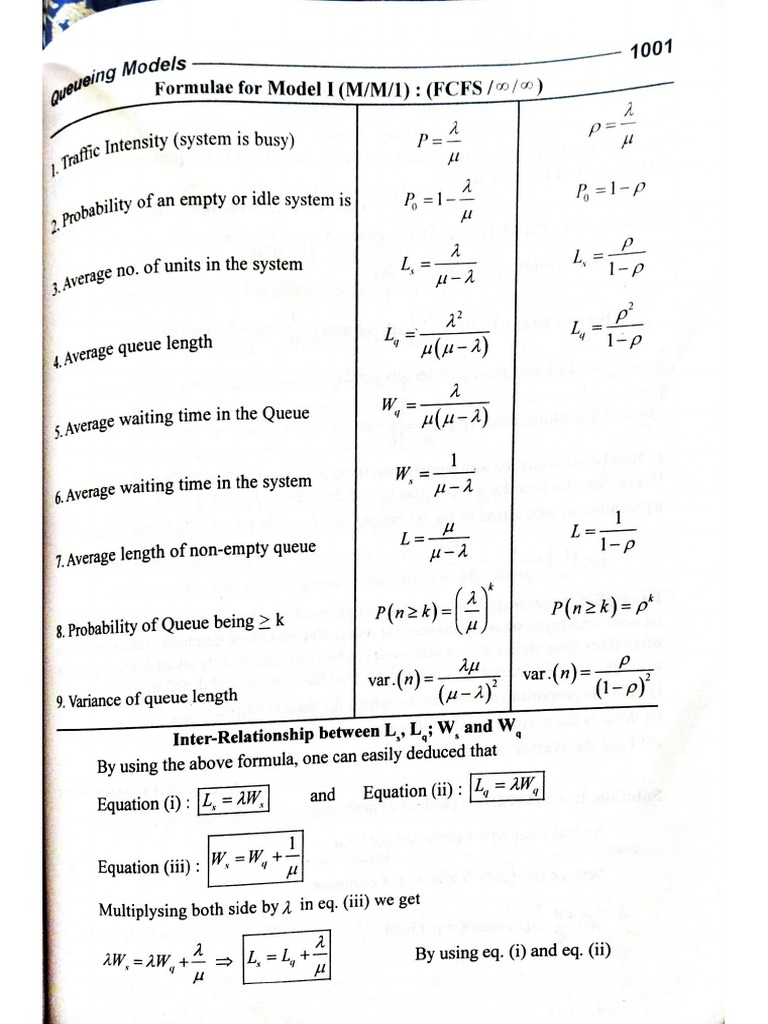 Queueing Models 1001
Formulae for Model I (M/M/1) : (FCFS / ∞ / ∞ )
1. Traffic Intensity (system is busy) P = λ/μ ρ = λ/μ
2. Probability of an empty or idle system is P₀ = 1 − λ/μ P₀ = 1 − ρ
3. Average no. of units in the system Lₛ = λ/(μ − λ) Lₛ = ρ/(1 − ρ)
4. Average queue length L_q = λ²/(μ(μ − λ)) L_q = ρ²/(1 − ρ)
5. Average waiting time in the Queue W_q = λ/(μ(μ − λ))
6. Average waiting time in the system Wₛ = 1/(μ − λ)
7. Average length of non-empty queue L = μ/(μ − λ) L = 1/(1 − ρ)
8. Probability of Queue being ≥ k P(n ≥ k) = (λ/μ)^k P(n ≥ k) = ρ^k
9. Variance of queue length var.(n) = λμ/(μ − λ)² var.(n) = ρ/(1 − ρ)²
Inter-Relationship between Lₛ, L_q; Wₛ and W_q
By using the above formula, one can easily deduced that
Equation (i) : Lₛ = λWₛ and Equation (ii) : L_q = λW_q
Equation (iii) : Wₛ = W_q + 1/μ
Multiplysing both side by λ in eq. (iii) we get
λWₛ = λW_q + λ/μ ⇒ Lₛ = L_q + λ/μ By using eq. (i) and eq. (ii)